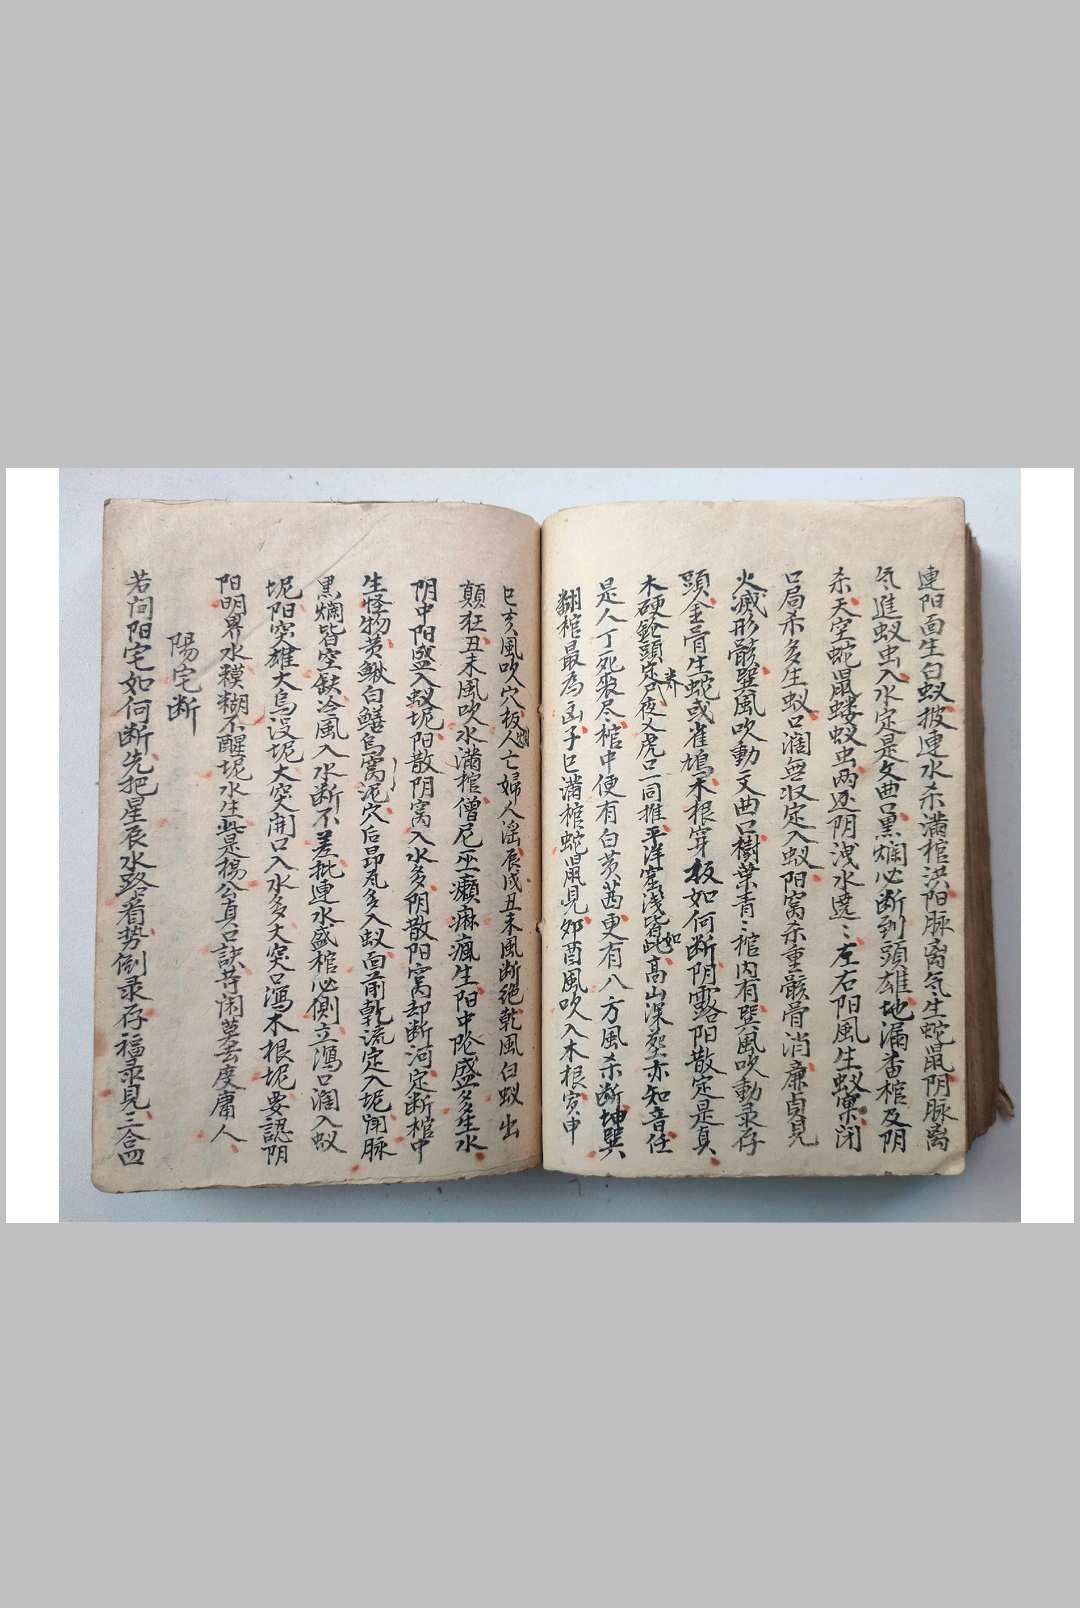 連阳面生白蚁披連水杀滿棺洪阳脉离气生蛇鼠阴脉离
气進蚁虫入水定是文曲口黑爛必断到頭雄地漏杳棺及阴
杀天空蛇鼠蝼蚁虫两边阴洩水遶〻左右阳風生蚁窠闭
口局杀多生蚁口濶無收定入蚁阳窩杀重骸骨消廉貞見
火滅形骸巽風吹動文曲口樹葉青〻棺内有巽風吹動录存
頭金骨生蛇或雀鳩木根穿板如何断阴露阳散定是真
木硬鎗頭定夜入虎口一同推平洋窪浅皆如此高山深塟亦知音任
是人丁死衰尽棺中便有白蟥茜更有八方風杀断坤巽
翻棺最為凶子巳滿棺蛇鼠見卯酉風吹入木根寅申
巳亥風吹穴板蚁人亡婦人滛辰戌丑未風断絕乾風白蚁出
顛狂丑未風吹水滿棺僧尼巫癩麻瘋生阳中阴盛多生水
阴中阳盛入蚁坭阳散阴窩入水多阴散阳窩却断河定断棺中
生怪物黄鰍白鳝烏窩泥穴后昂瓦多入蚁面前乾流定入坭闭脉
黒爛皆空缺冷風入水断不差批連水盛棺必側立瀉口濶入蚁
坭阳突雄大烏没坭大突開口入水多大突口瀉木根坭要認阴
阳明界水糢糊不醒坭水生此是楊公真口訣等闲莫去度庸人
陽宅断
若问阳宅如何断先把星辰水路看势倒录存福录見三合四